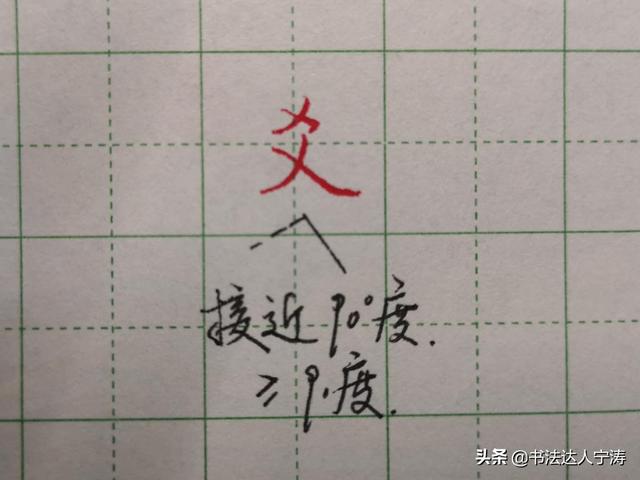 爻
接近90°度.
≥90度.
头条 @书法达人宁涛